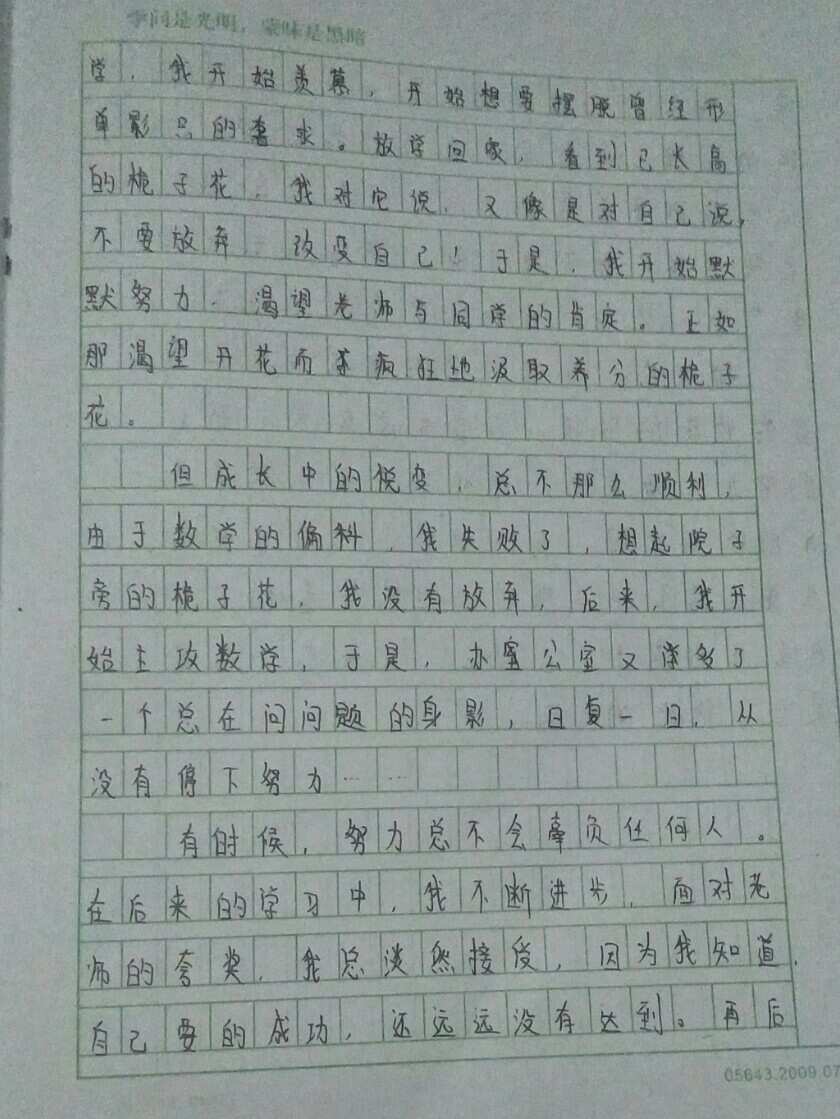 学问是光明，蒙昧是黑暗
学，我开始羡慕，开始想要摆脱曾经形
单影只的奢求。放学回家，看到已长高
的栀子花，我对它说，又像是对自己说，
不要放弃 改变自己！于是，我开始默
默努力，渴望老师与同学的肯定。正如
那渴望开花而疯狂地汲取养分的栀子
花。
但成长中的悦变，总不那么顺利，
由于数学的偏科，我失败了，想起院子
旁的栀子花，我没有放弃，后来，我开
始主攻数学，于是，办室公室又常多了
一个总在问问题的身影，日复一日，从
没有停下努力……
有时候，努力总不会辜负任何人。
在后来的学习中，我不断进步，面对老
师的夸奖，我总淡然接受，因为我知道，
自己要的成功，还远远没有达到。再后
05643.2009.07